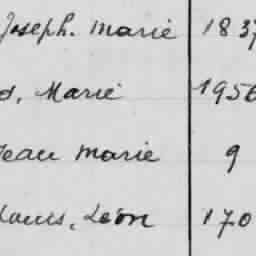 Joseph. Marie 1837
d, Marie 1956
Jean Marie 9
Louis, Léon 170